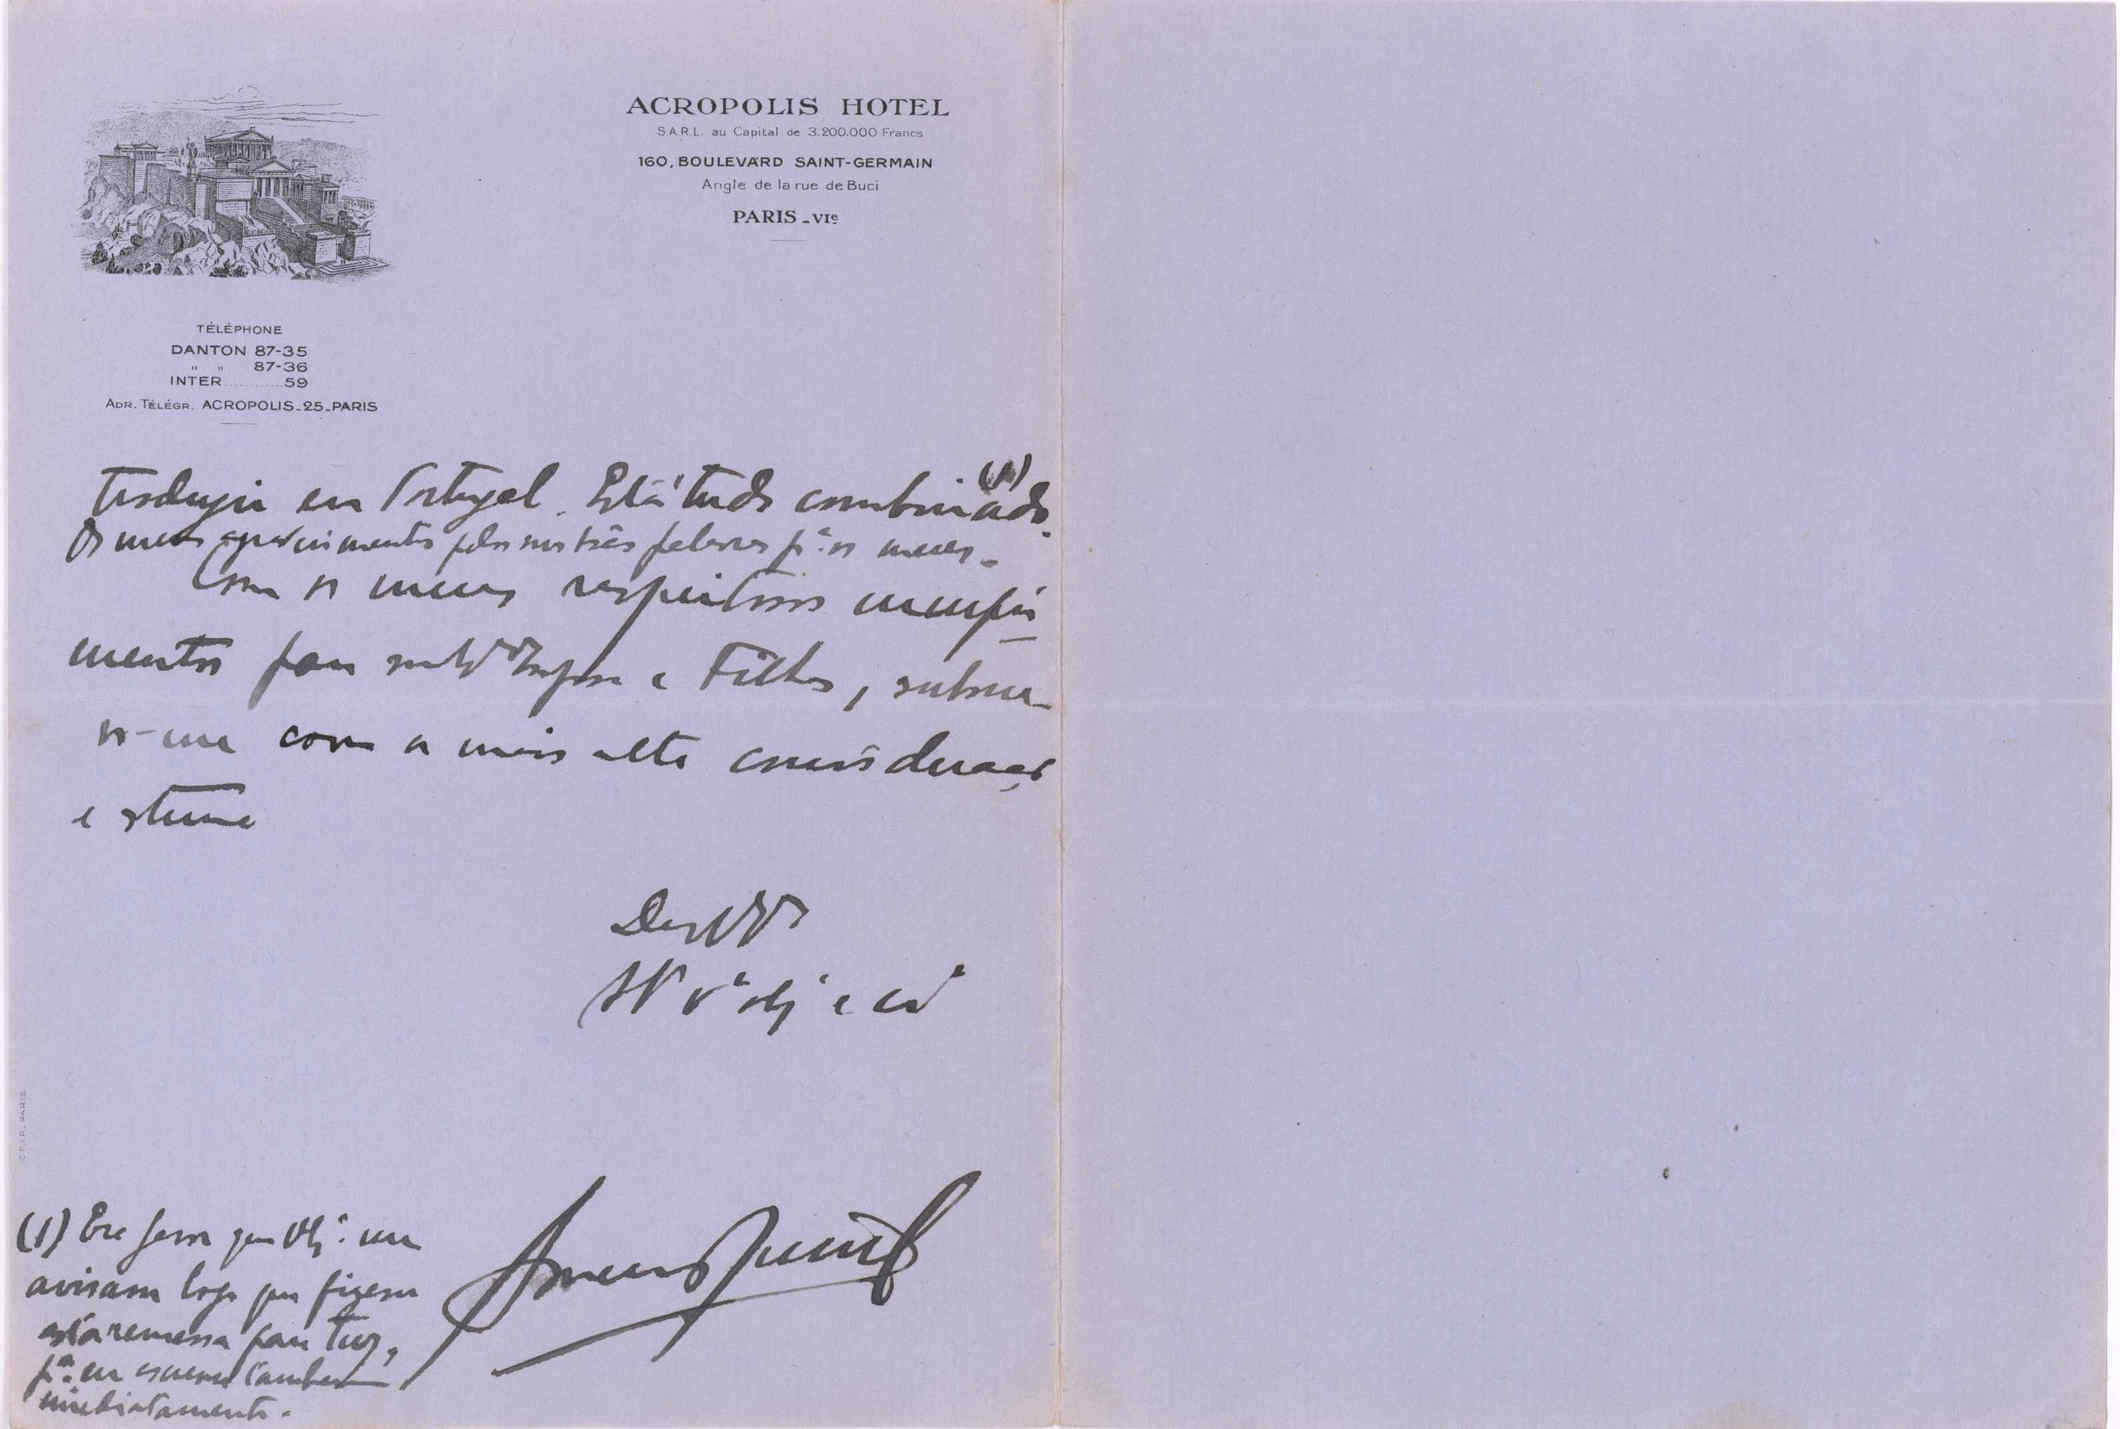 ACROPOLIS HOTEL
S.A.R.L. au Capital de 3.200.000 Francs
160, BOULEVARD SAINT-GERMAIN
Angle de la rue de Buci
PARIS - VIe
TÉLÉPHONE
DANTON 87-35
" " 87-36
INTER..........59
ADR. TÉLÉGR. ACROPOLIS-25-PARIS
em Portugal. Está tudo combinado (1).
Os meus agradecimentos palavras pª. os meus.
Com os meus respeitosos cumpri-
mentos para Esposa e Filhos, subscre-
vo-me com a mais alta consideração
e estima
De V.
(1) Era favor que me
avisam logo que fizeram
esta remessa para
pª. eu escrever também
imediatamente.